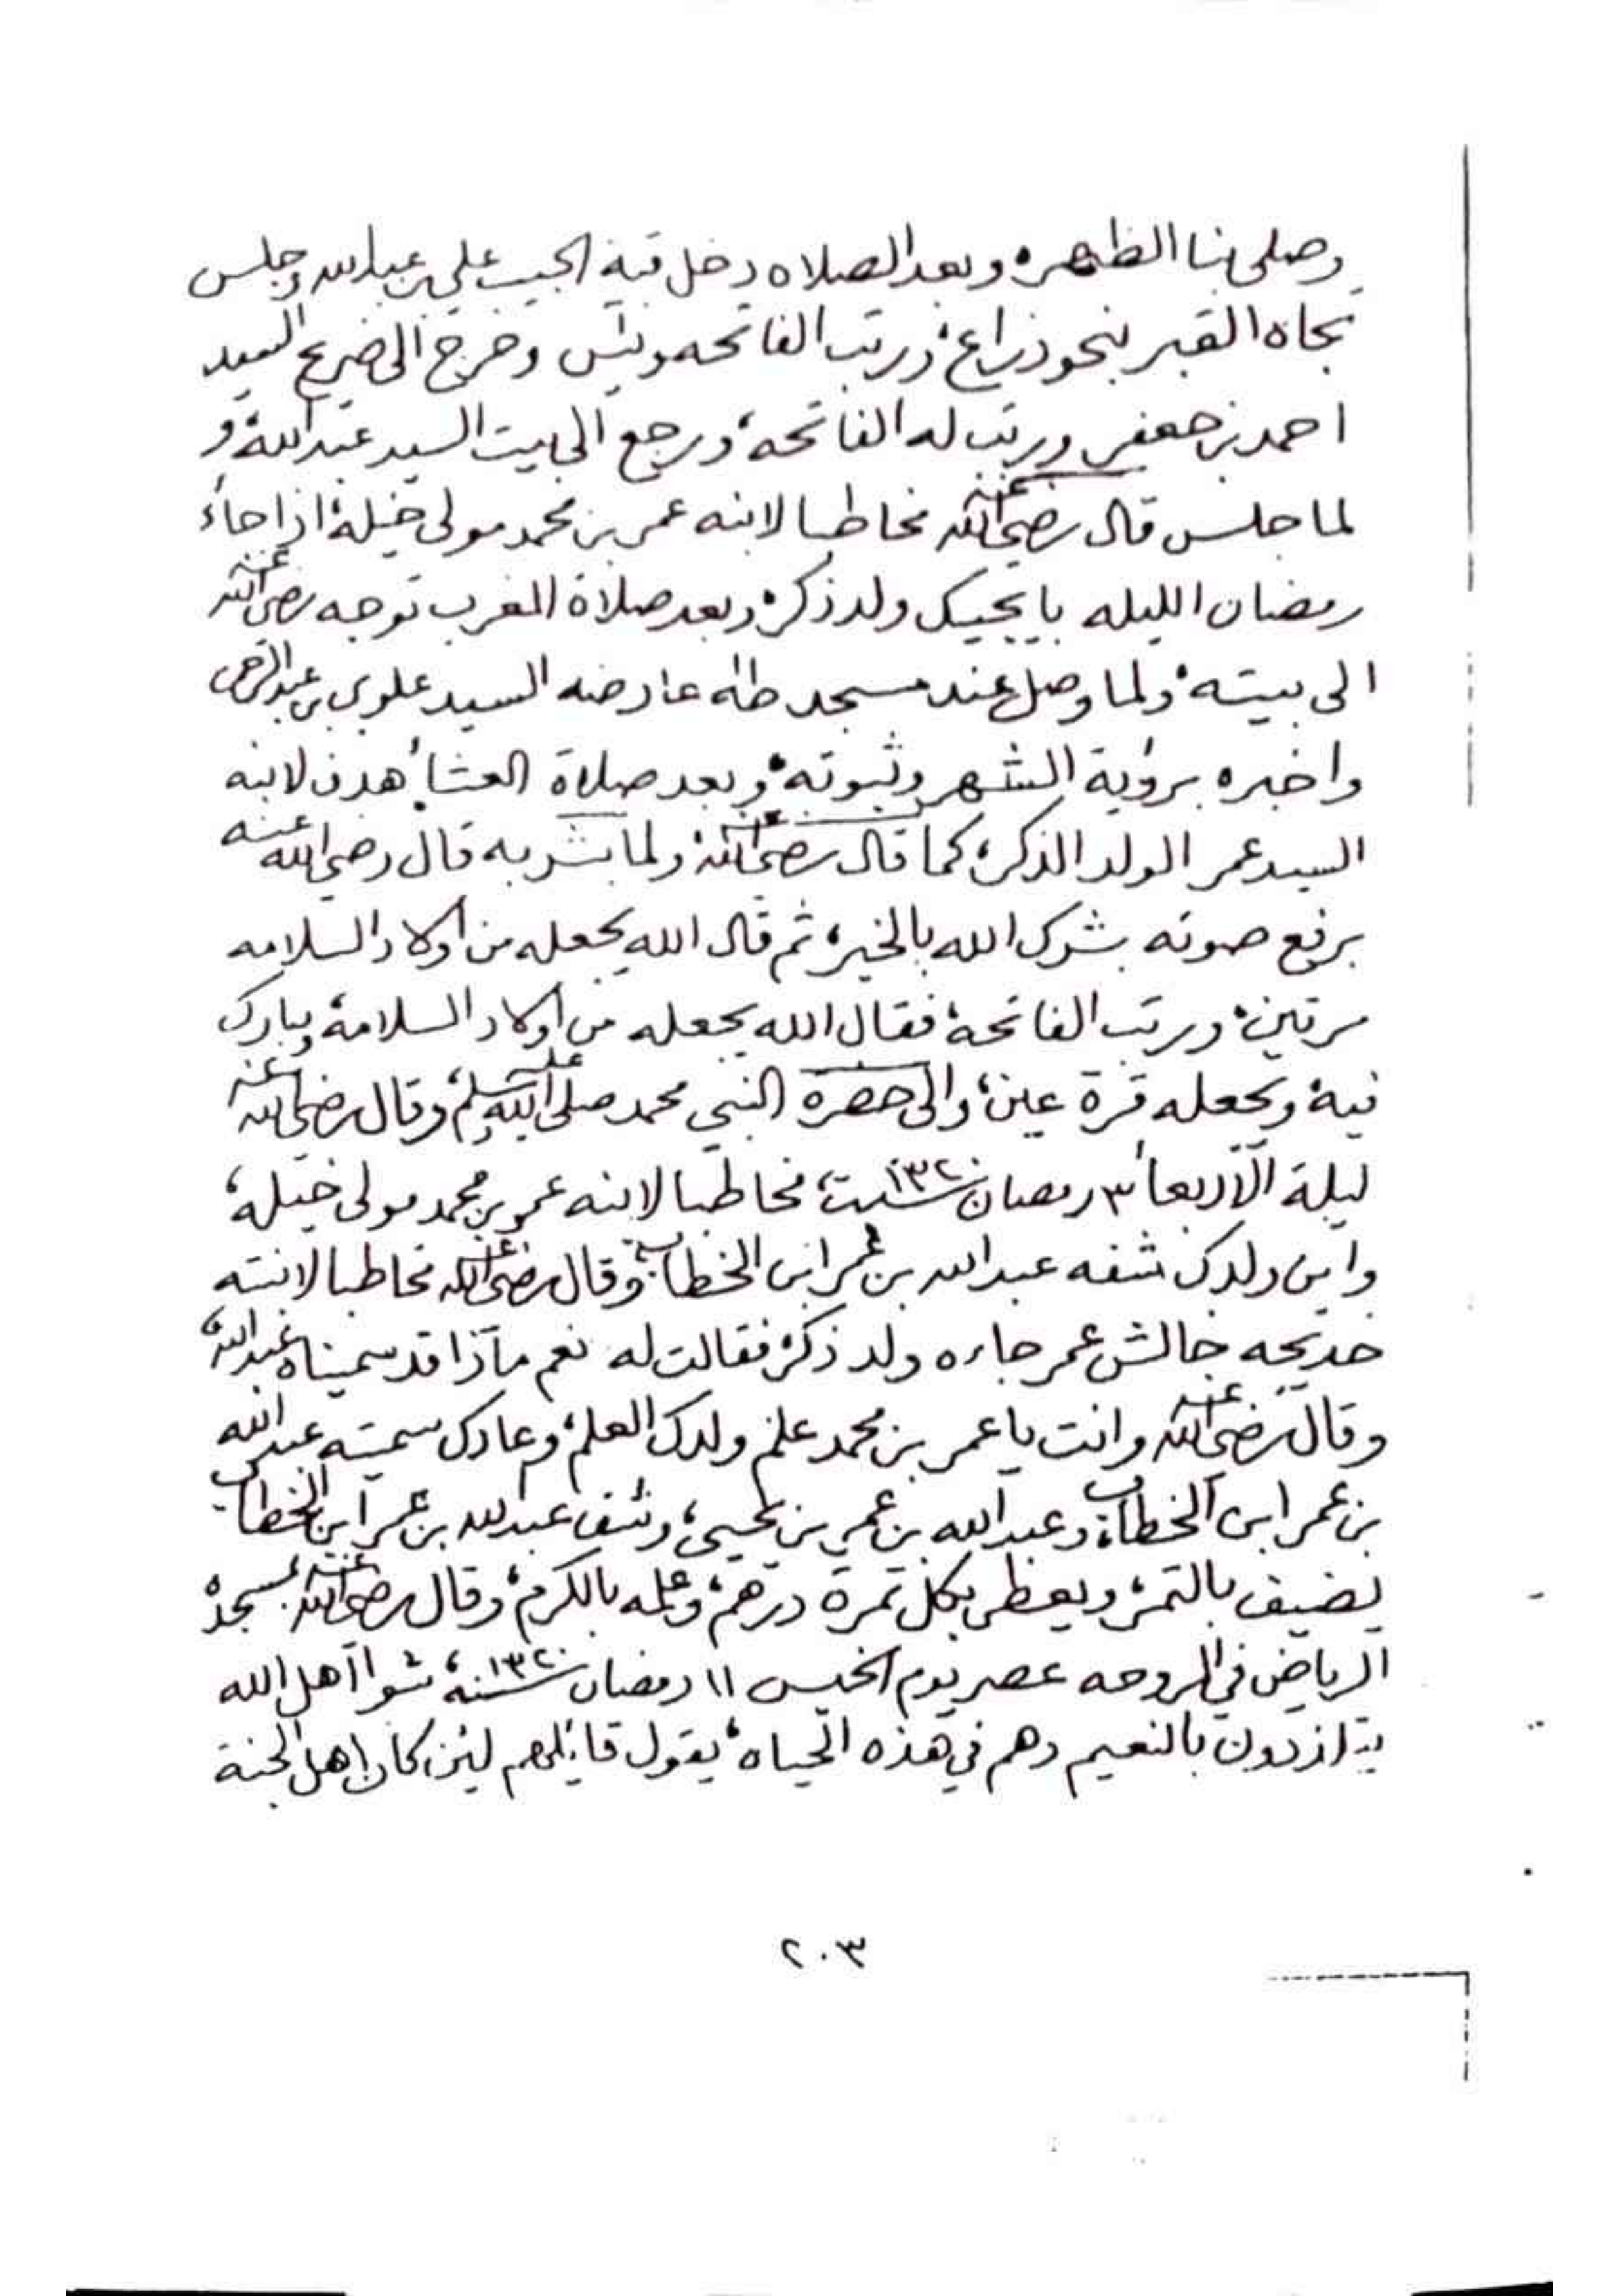 وصلى بنا الظهر، وبعد الصلاه دخل قبة الحبيب علي بن عبدالله وجلس
تجاه القبر بنحو ذراع، ورتب الفاتحه ويٰس وخرج الى ضريح السيد
احمد بن جعفر ورتب له الفاتحة، ورجع الى بيت السيد عبدالله، و
لما جلس قال رضي الله عنه مخاطبا لابنه عمر بن محمد مولى خيلة، اذا جاء
رمضان الليله بايجيك ولد ذكر، وبعد صلاة المغرب توجه رضي الله عنه
الى بيته، ولما وصل عند مسجد طٰه عارضه السيد علوي بن عبدالرحمن
واخبره برؤية الشهر وثبوته، وبعد صلاة العشاء هدن لابنه
السيد عمر الولد الذكر، كما قال رضي الله عنه، ولما بشر به قال رضي الله عنه
برفع صوته بشرك الله بالخير، ثم قال الله يجعله من اولاد السلامه
مرتين، ورتب الفاتحة، فقال الله يجعله من اولاد السلامة، ويبارك
فيه، ويجعله قرة عين، والى حضرة النبي محمد صلى الله عليه وسلم، وقال رضي الله عنه
ليلة الاربعاء ٣ رمضان سنة ١٣٢٠، مخاطبا لابنه عمر بن محمد مولى خيله،
واين ولدك شفه عبدالله بن عمر ابن الخطاب، وقال رضي الله عنه مخاطبا لابنته
خديجه خالش عمر جاءه ولد ذكر، فقالت له نعم ماذا قد سميناه عبدالله،
وقال رضي الله عنه وانت يا عمر بن محمد علم ولدك العلم، وعادك سميته عبدالله
بن عمر ابن الخطاب، وعبدالله بن عمر بن يحيى، وشف عبدالله بن عمر ابن الخطاب
يضيف بالتمر، ويعطي بكل تمرة درهم، وعلمه بالكرم، وقال رضي الله عنه بمسجد،
الرياض في الروحه عصر يوم الخميس ١١ رمضان سنة ١٣٢٠، شوا اهل الله
يتلذذون بالنعيم وهم في هذه الحياه، يقول قائلهم لئن كان اهل الجنة
٢٠٣